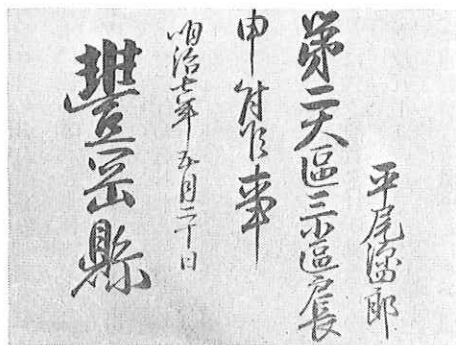 平尾郎
第二大區三小區戸長
申付候事
明治七年五月二十日
豐岡縣